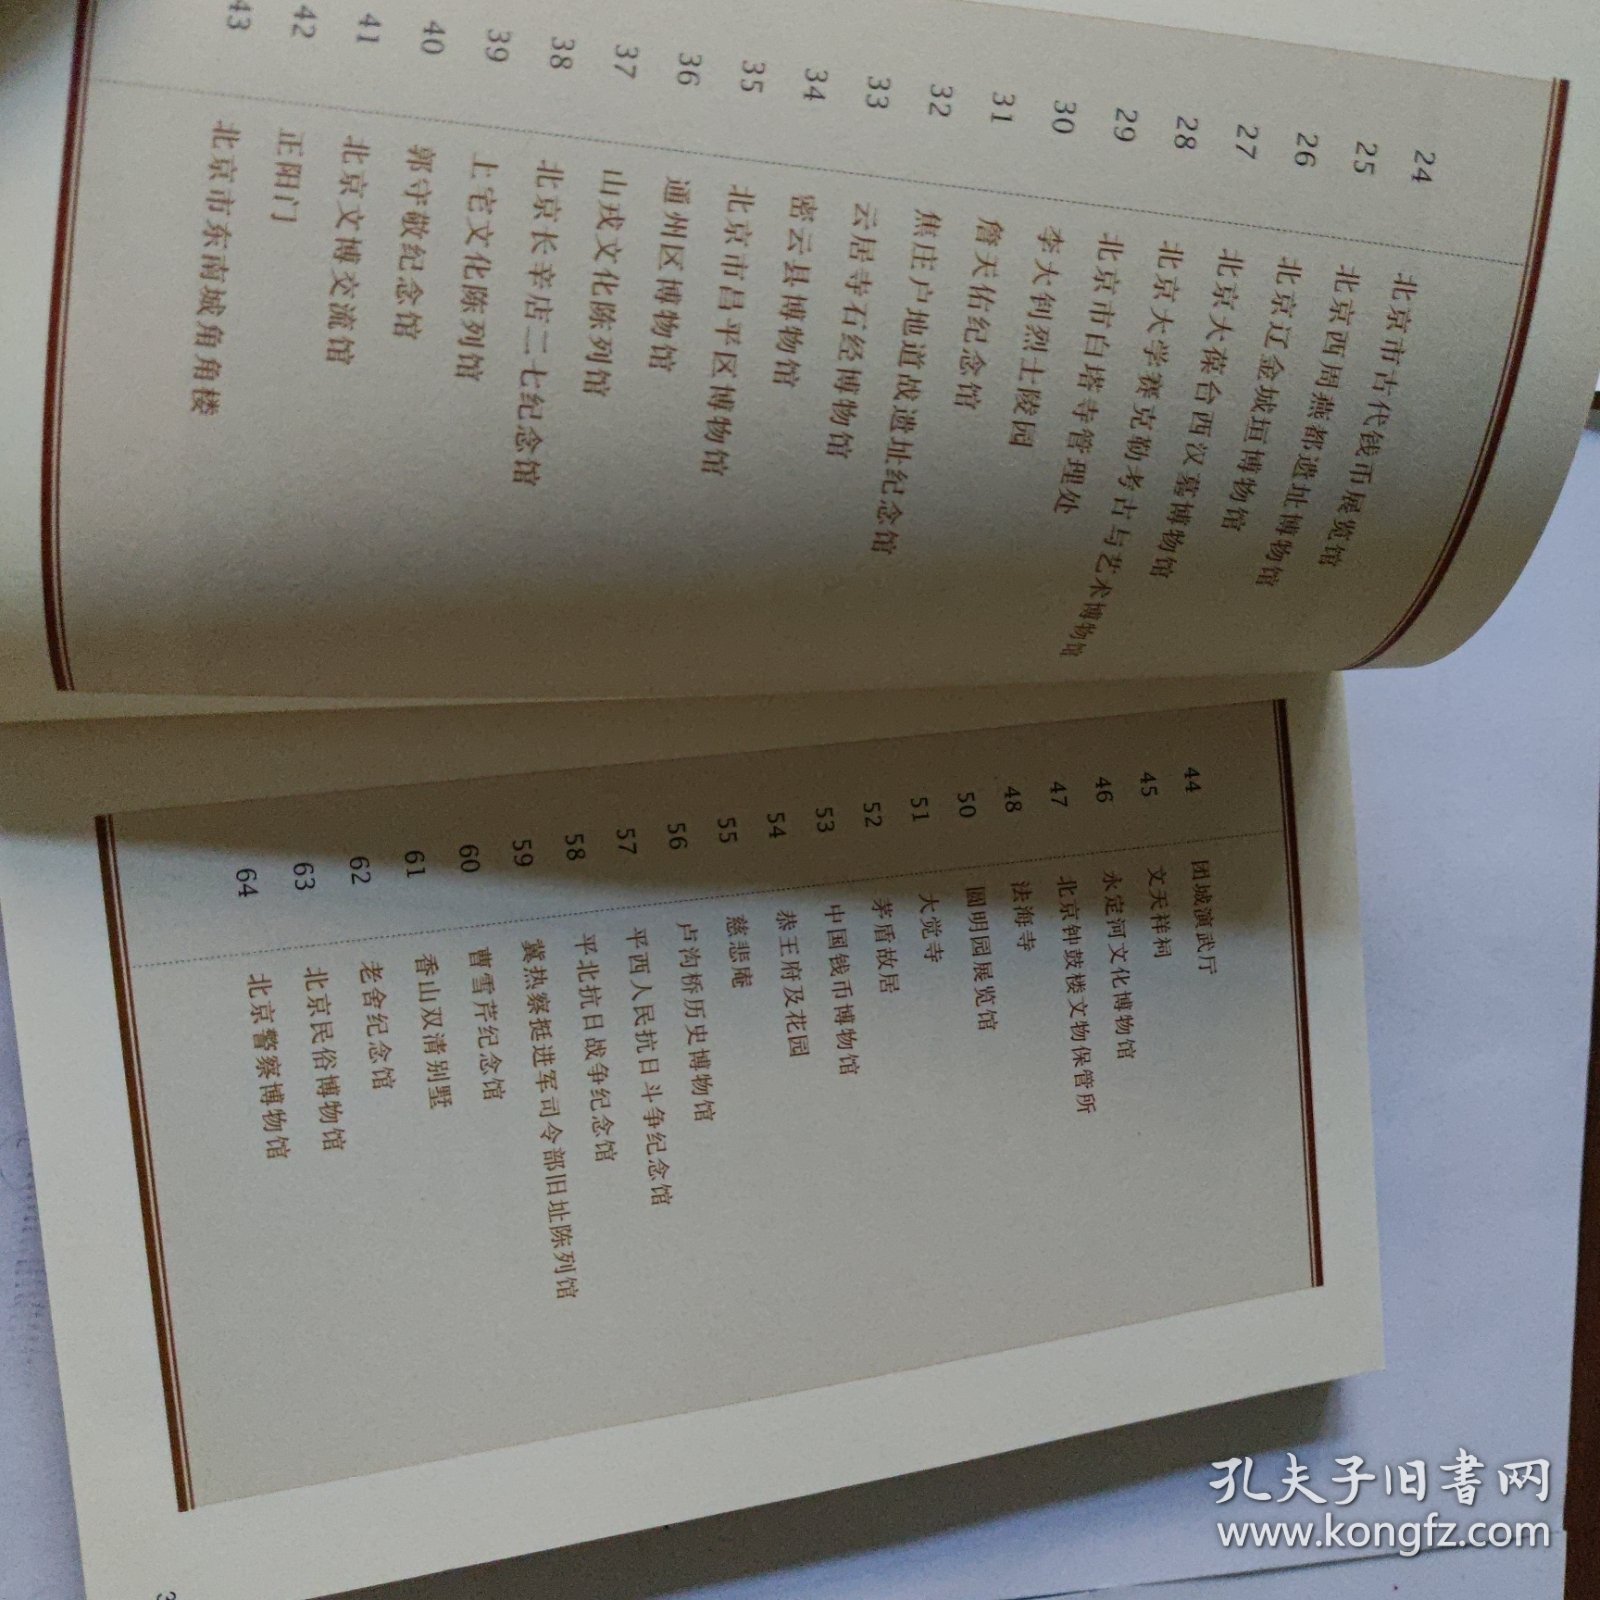 24 北京市古代钱币展览馆
25 北京西周燕都遗址博物馆
26 北京辽金城垣博物馆
27 北京大葆台西汉墓博物馆
28 北京大学赛克勒考古与艺术博物馆
29 北京市白塔寺管理处
30 李大钊烈士陵园
31 詹天佑纪念馆
32 焦庄户地道战遗址纪念馆
33 云居寺石经博物馆
34 密云县博物馆
35 北京市昌平区博物馆
36 通州区博物馆
37 山戎文化陈列馆
38 北京长辛店二七纪念馆
39 上宅文化陈列馆
40 郭守敬纪念馆
41 北京文博交流馆
42 正阳门
43 北京市东南城角角楼
44 团城演武厅
45 文天祥祠
46 永定河文化博物馆
47 北京钟鼓楼文物保管所
48 法海寺
50 圆明园展览馆
51 大觉寺
52 茅盾故居
53 中国钱币博物馆
54 恭王府及花园
55 慈悲庵
56 卢沟桥历史博物馆
57 平西人民抗日斗争纪念馆
58 平北抗日战争纪念馆
59 冀热察挺进军司令部旧址陈列馆
60 曹雪芹纪念馆
61 香山双清别墅
62 老舍纪念馆
63 北京民俗博物馆
64 北京警察博物馆
孔夫子旧書网
www.kongfz.com